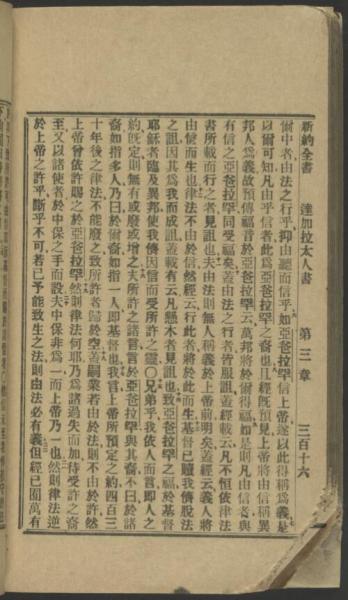 新約全書 達加拉太人書 第三章 三百十六
爾中者由法之行乎抑由聽而信乎如亞伯拉罕信上帝遂以此得稱爲義是
以爾可知凡由乎信者此爲亞伯拉罕之裔也且經旣預見上帝將由信稱異
邦人爲義故預傳福音於亞伯拉罕云萬邦將於爾得福如是則凡由信者與
有信之亞伯拉罕同受福矣蓋由法之行者皆服詛蓋經載云凡不恒依律法
書所載而行之者見詛也夫由法則無人稱義於上帝前明矣蓋經云義人將
由信而生也律法不由於信然經云行此者將於此而生基督已贖我儕脫法
之詛因其爲我而成詛蓋載有云凡懸木者見詛也致亞伯拉罕之福於基督
耶穌者臨及異邦使我儕因信而受所許之靈〇兄弟乎我依人而言卽人之
約旣定則無有或廢或增之夫所許之諸言言於亞伯拉罕與其裔不曰於諸
裔如指多人乃曰於爾裔如指一人卽基督也我言上帝所預定之約四百三
十年後之律法不能廢之致所許者歸於空蓋嗣業若由於法則不由於許然
上帝曾依許賜之於亞伯拉罕然則律法何耶乃爲諸過失而加待受許之裔
至又以諸使者於中保之手而設夫中保非爲一而上帝乃一也然則律法逆
於上帝之許乎斷乎不可若已予能致生之法則由法必有義但經已囿萬有